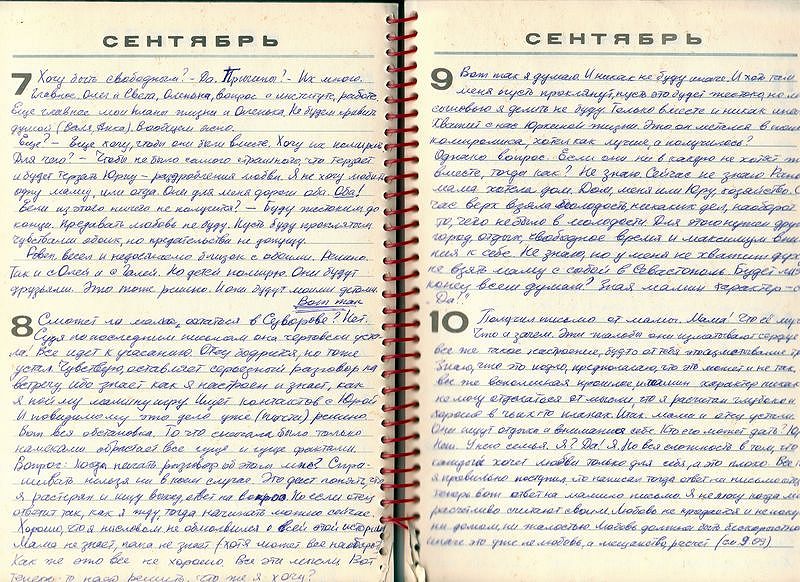 СЕНТЯБРЬ
7 Хочу быть свободным? - Да. Причины? - Их много.
Главное. Олег и Света, Оленька, вопрос о институте, работе.
Еще главное мои планы жизни и Оленька. Не будем кривить
душой (Валя, Анка). Вообщем ясно.
Еще? - Еще хочу, чтобы они были вместе. Хочу их помирить.
Для чего? - Чтобы не было самого страшного, что терзает
и будет терзая Юрку - раздробления любви. Я не хочу любить
одну маму, или отца. Они для меня дороги оба. Оба!
Если из этого ничего не получится? - Буду жестоким до
конца. Предавать любовь не буду. Пусть буду проклятым
чувствами обоих, но предательства не допущу.
весел и недосягаемо близок с обоими. Решено.
Так и с Олей и с Галей. Но детей помирю. Они будут
друзьями. Это тоже решено. И они будут моими детьми.
Вот так
8 Сможет ли мама, остаться в Суворове? Нет.
Судя по последним письмам она чертовски уста-
ла. Всё идет к угасанию. Отец бодрится, но тоже
устал. Чувствую, оставляет серьезный разговор на
встречу, ибо знает как я настроен и знает, как
я пойму мамину игру. Ищет контактов с Юрой
И повидимому это дело уже решено.
Вот вся обстановка. То что сначала было только
намеками обрастает все гуще и гуще фактами.
Вопрос: Когда начать разговор об этом мне? Спра-
шивать нельзя ни в коем случае. Это даст понять, что
я растерян и ищу выход, ответ на вопрос. Но если отец
ответит так, как я жду, тогда начинать можно сейчас.
Хорошо, что я письмом не обмолвился о всей этой истории
Мама не знает, пока не знает (хотя может все наоборот)
Как же это все не хорошо. Все эти мысли. Вот
теперь-то надо решить, что же я хочу?
СЕНТЯБРЬ
9 Вот так я думаю. И никак не буду иначе. И хоть там
меня пусть проклянут, пусть это будет жестоко, но
сыновью я делить не буду. Только вместе и никак иначе
Хватит с нас Юркиной жизни. Это он метался в поисках
компромисса, хотел как лучше, а получилось?
Однако вопрос. Если они ни в какую не хотят
вместе, тогда как? Не знаю. Сейчас не знаю.
мама хотела дом. Дом, меня или Юру, хозяйство.
час верх взяла молодость, никаких дел, наоборот
то, чего не было в молодости. Для этого нужен другой
город, отдых, свободное время и максимум вни-
ния к себе. Не знаю, но у меня не хватит духу
не взять маму с собой в Севастополь. Будет ли
концу всем думам? Зная мамин характер -
"Да!"
10 Получил письмо от мамы. Мама! Что её
Что и зачем. Эти жалобы они изматывают сердце
все же такое настроение, будто от тебя
Знаю, что это подло, предполагаю, что это может и не так
все же вспоминая прошлое, и мамин характер
не могу отделаться от мысли что я расчитан глубоко и
хорошо в чьих-то планах. Итак мама и отец устали.
Они ищут отдыха и внимания к себе. Кто его может дать? Юра
Нет. У него семья. Я? Да! Я. Но вся сложность в том, что
каждый хочет любви только для себя, а это плохо. Все
я правильно поступил, что написал тогда ответ на письмо отца
теперь вот ответ на мамино письмо. Я не могу когда
расчетливо считают своим. Любовь не продается и не поку-
ни домом, ни жалостью. Любовь должна быть бескорыстной
иначе это уже не любовь, а мещанство, расчет (см 9.09)